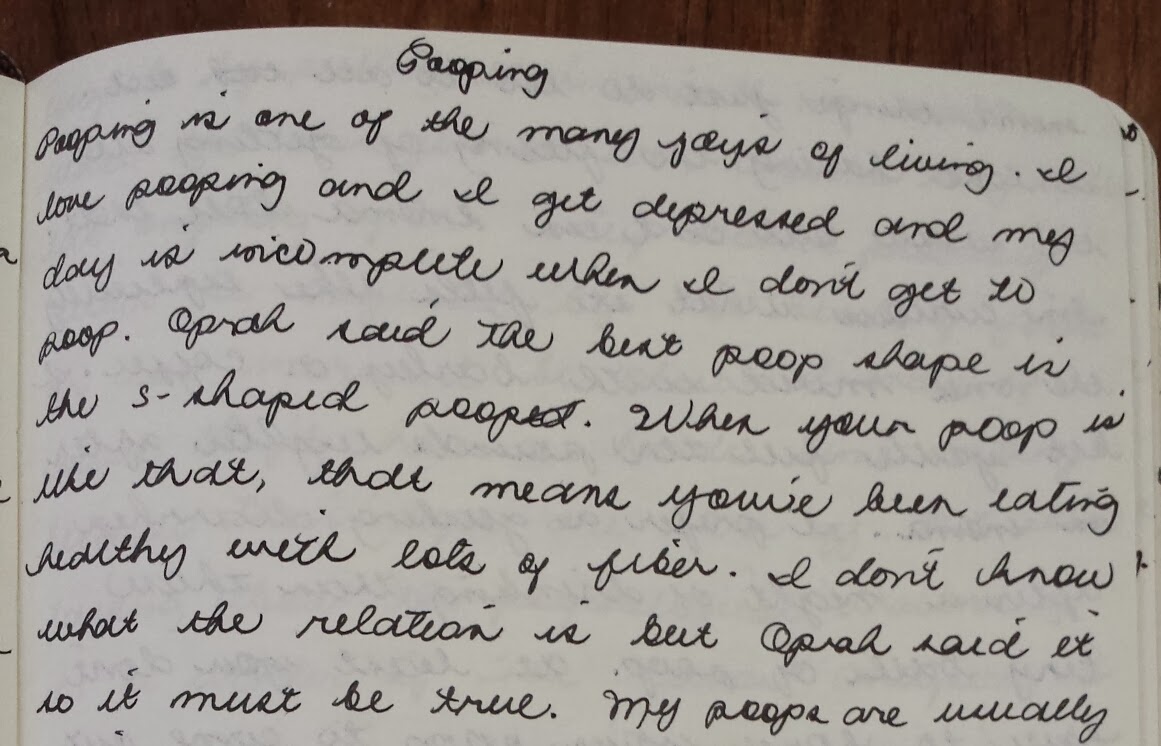 Pooping
Pooping is one of the many joys of living. I
love pooping and I get depressed and my
day is incomplete when I don't get to
poop. Oprah said the best poop shape is
the s-shaped poop. When your poop is
like that, that means you've been eating
healthy with lots of fiber. I don't know
what the relation is but Oprah said it
so it must be true. My poops are usually